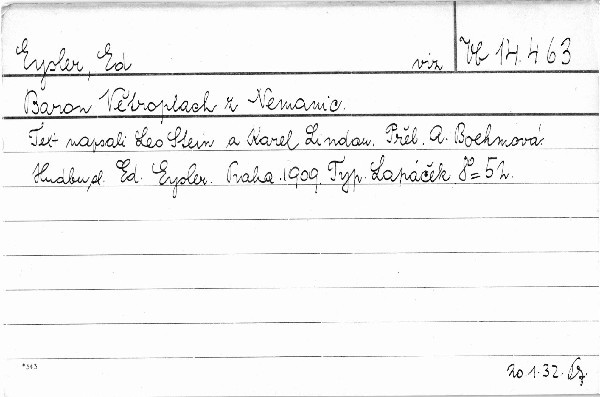 Eysler, Ed viz Vb 14.463
Baron Větroplach z Nemanic.
Tet napsali Leo Stein a Karel Lindau. Přel. A. Boehmová.
Hudbu Ed. Eysler. Praha. 1909. Typ. Lapáček 8° 52.
*343
20.1.32.